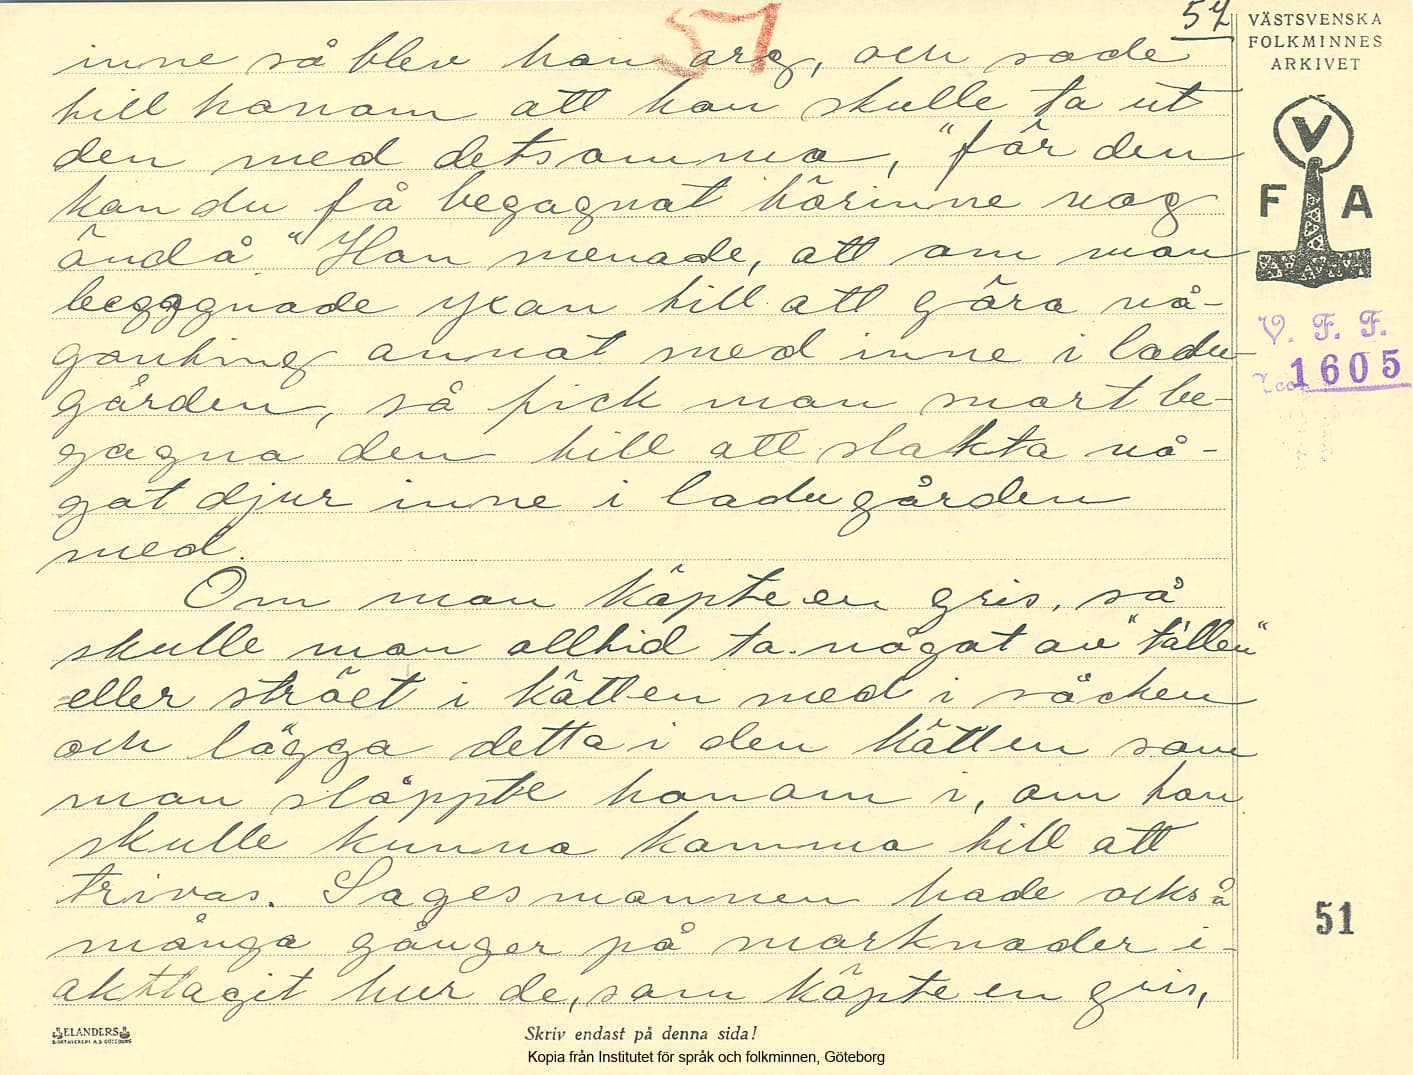 57
57
VÄSTSVENSKA
FOLKMINNES
ARKIVET
inne så blev han arg, och sade
till honom att han skulle ta ut
den med detsamma, "för den
kan du få begagnat härinne nog
ändå." Han menade, att om man
begagnade yxan till att göra nå-
gonting annat med inne i ladu-
gården, så fick man snart be-
gagna den till att slakta nå-
got djur inne i ladugården
med.
Om man köpte en gris, så
skulle man alltid ta något av "fällen"
eller ströet i kätten med i säcken
och lägga detta i den kätten som
man släppte honom i, om han
skulle kunna komma till att
trivas. Sagesmannen hade också
många gånger på marknader i-
akttagit hur de, som köpte en gris,
V
F A
V. F. F.
1605
51
ELANDERS
BOKTRYCKERI A.B. GÖTEBORG
Skriv endast på denna sida!
Kopia från Institutet för språk och folkminnen, Göteborg